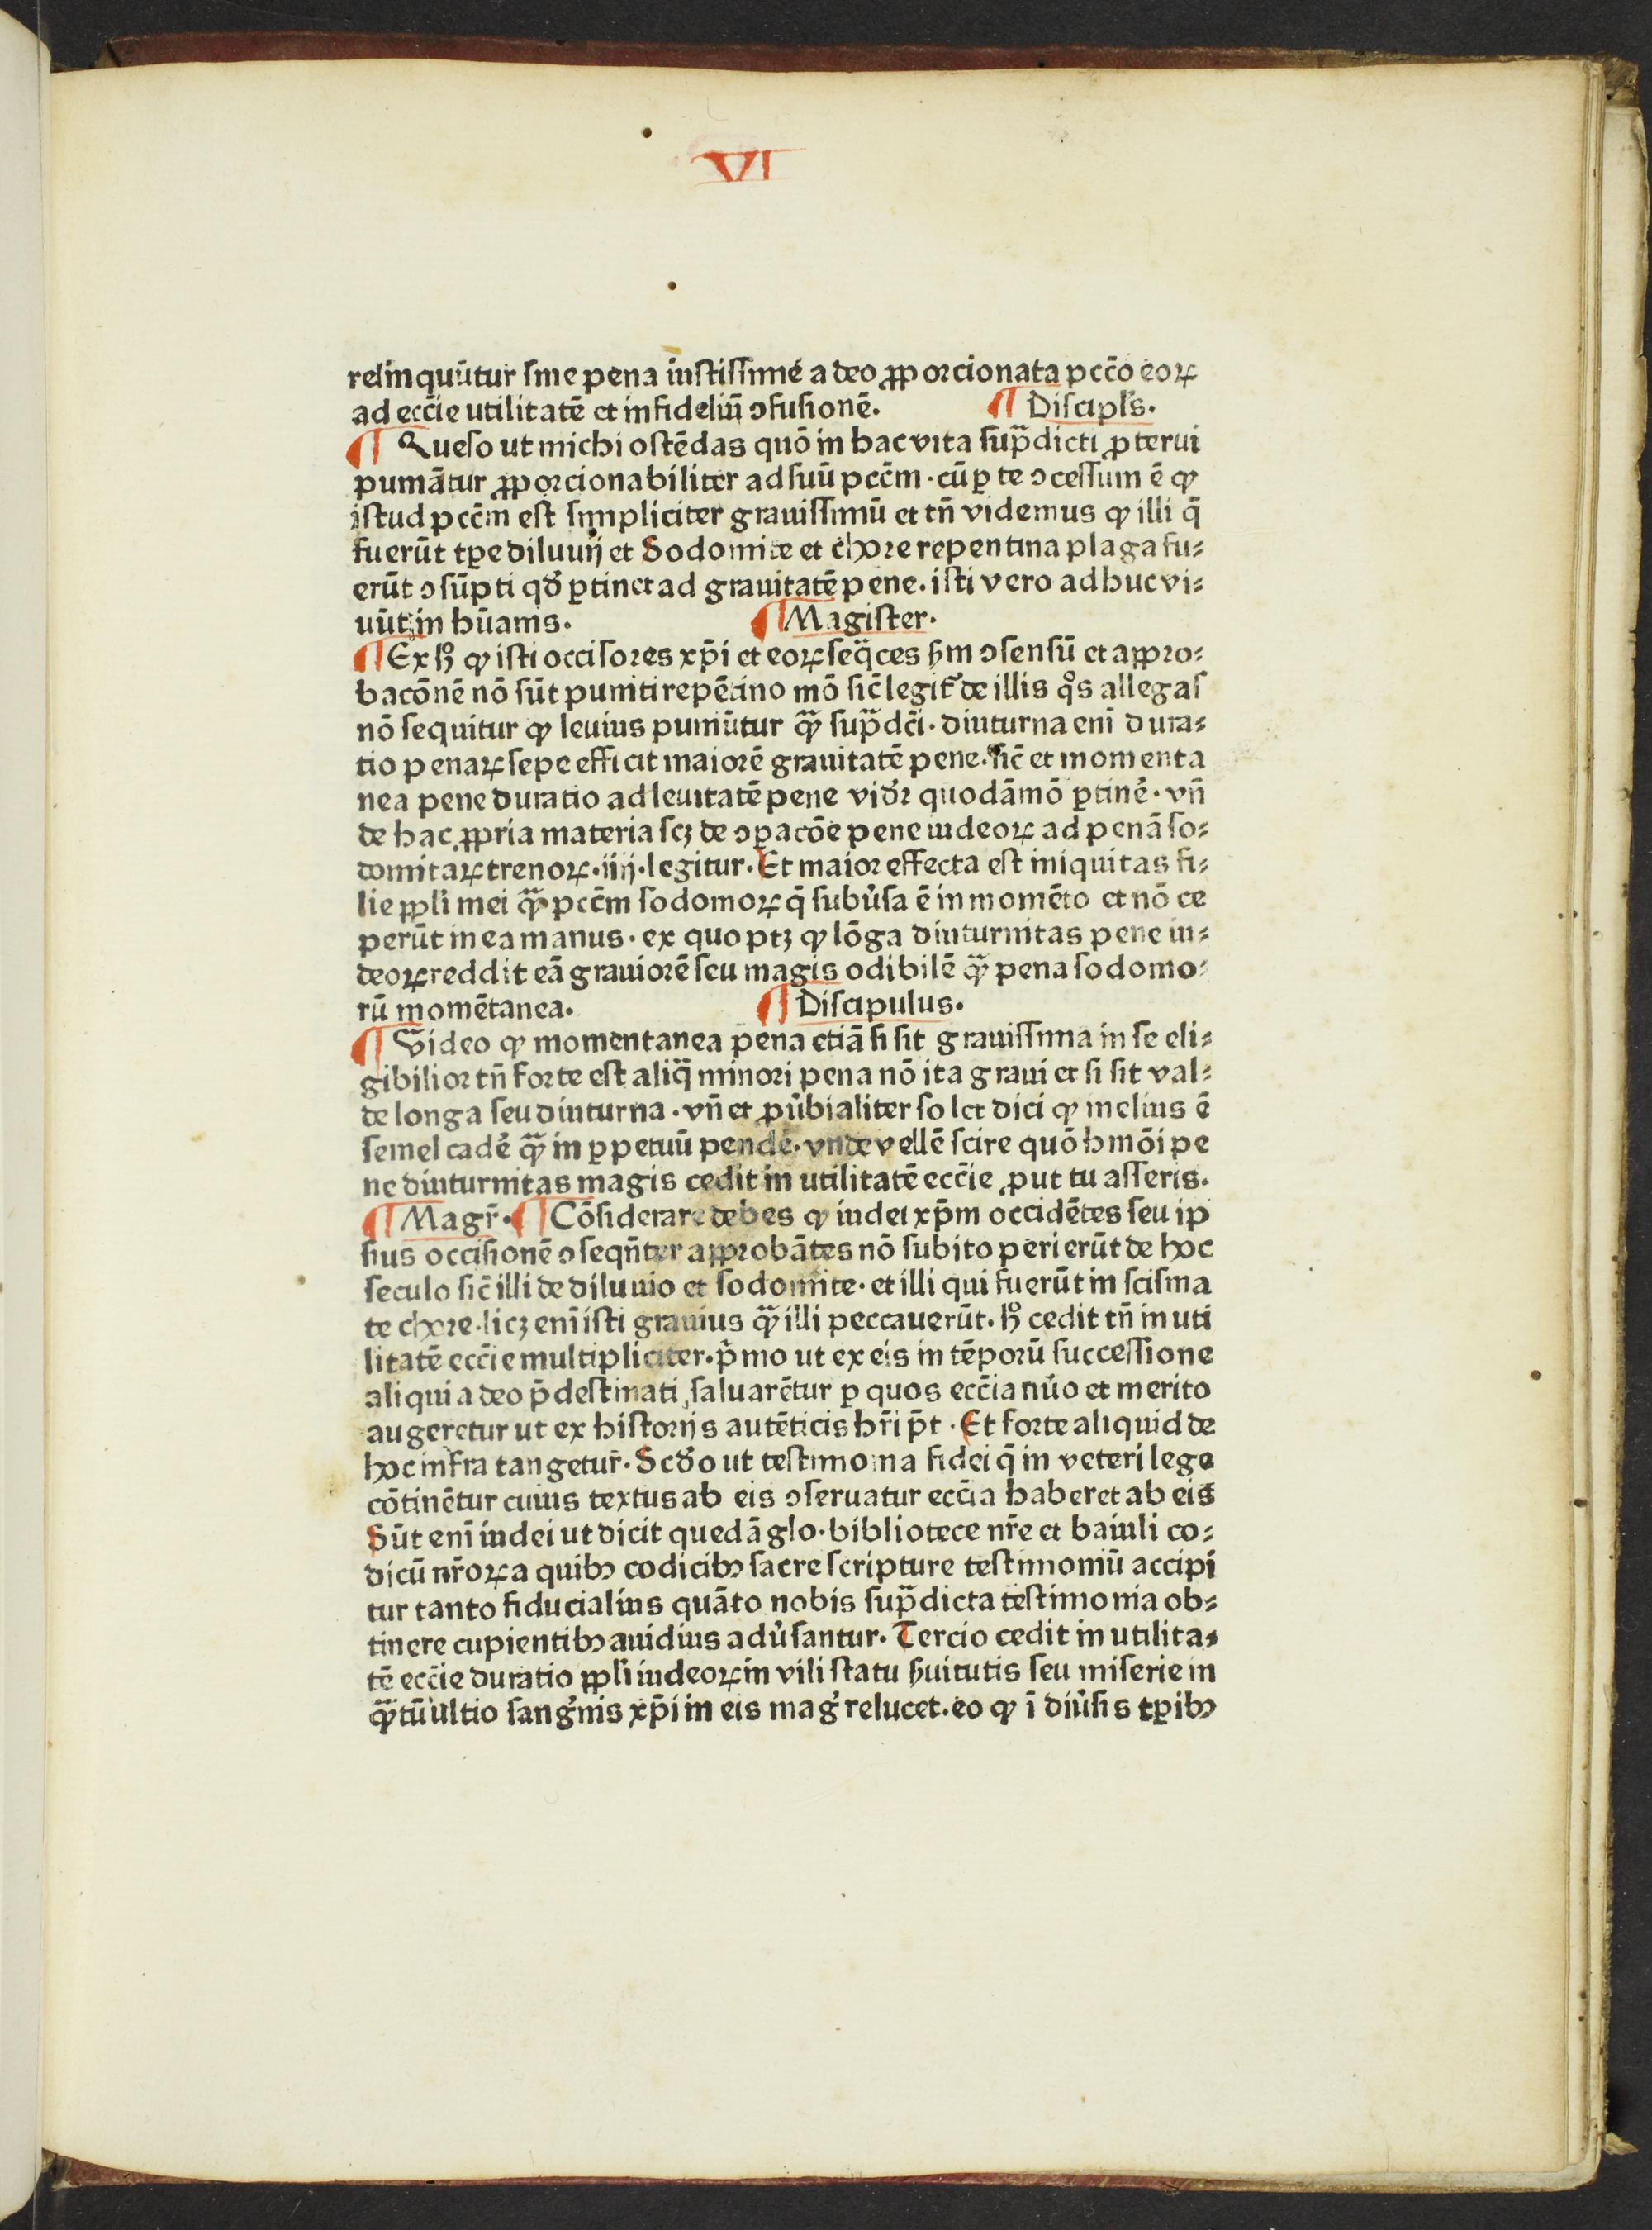 VI
relinquūtur sine pena iustissime a deo ꝓporcionata pccō eoꝝ
ad eccīe utilitatē et infideliū ↄfusionē. ¶ Discipl's.
¶ Queso ut michi ostēdas quō in hac vita sup̄dicti ꝓterui
puniātur ꝓporcionabiliter ad suū pccm̄ · cū ꝑ te ↄcessum ē ꝙ
istud pccm̄ est simpliciter grauissimū et tn̄ videmus ꝙ illi q̄
fuerūt tꝑe diluuij et Sodomite et chore repentina plaga fu⸗
erūt ↄsūpti qd̓ ꝑtinet ad grauitatē pene. isti vero adhuc vi⸗
uūt in hūanis. ¶ Magister.
¶ Ex hͦ ꝙ isti occisores xp̄i et eoꝝ seq̄ces ẜm ↄsensū et appro⸗
bacōnē nō sūt puniti repētino mō sic̄ legit᷑ de illis qͦs allegas
nō sequitur ꝙ leuius puniūtur qͣꝫ sup̄dc̄i · diuturna enī dura⸗
tio penaꝝ sepe efficit maiorē grauitatē pene. sic̄ et momenta
nea pene duratio ad leuitatē pene vid̓r quodāmō ꝑtinē · vn̄
de hac ꝓpria materia scꝫ de ↄꝑacōe pene iudeoꝝ ad penā so⸗
domitaꝝ trenoꝝ · iiij · legitur. Et maior effecta est iniquitas fi⸗
lie ppl̓i mei qͣꝫ pccm̄ sodomoꝝ q̄ subu̓sa ē in momēto et nō ce
perūt in ea manus · ex quo ptꝫ ꝙ lōga diuturnitas pene iu⸗
deoꝝ reddit eā grauiorē seu magis odibilē qͣꝫ pena sodomo⸗
rū momētanea. ¶ Discipulus.
¶ Video ꝙ momentanea pena etiā si sit grauissima in se eli⸗
gibilior tn̄ forte est aliq̄ minori pena nō ita graui et si sit val⸗
de longa seu diuturna · vn̄ et ꝓu̓bialiter solet dici ꝙ melius ē
semel cadē qͣꝫ in ꝑpetuū pendē · vnde vellē scire quō hmōi pe
ne diuturnitas magis cedit in utilitatē eccīe ꝓut tu asseris.
¶ Magr̄. ¶ Cōsiderare debes ꝙ iudei xp̄m occidētes seu ip
sius occisionē ↄseqn̄ter approbātes nō subito perierūt de hoc
seculo sic̄ illi de diluuio et sodomite · et illi qui fuerūt in scisma
te chore · licꝫ enī isti grauius qͣꝫ illi peccauerūt. hͦ cedit tn̄ in uti
litatē eccīe multipliciter. p̄mo ut ex eis in tēporū successione
aliqui a deo p̄destinati saluarētur ꝑ quos eccīa nu̓o et merito
augeretur ut ex historijs autēticis hr̄i p̄t · Et forte aliquid de
hoc infra tangetur̄. Scd̓o ut testimonia fidei q̄ in veteri lege
cōtinētur cuius textus ab eis ↄseruatur eccīa haberet ab eis
Sūt enī iudei ut dicit quedā glo · bibliotece nr̄e et baiuli co⸗
dicū nr̄oꝝ a quibꝰ codicibꝰ sacre scripture testimoniū accipi
tur tanto fiducialius quāto nobis sup̄dicta testimonia ob⸗
tinere cupientibꝰ auidius adu̓santur. Tercio cedit in utilita⸗
tē eccīe duratio ppl̓i iudeoꝝ in vili statu ẜuitutis seu miserie in
qͣꝫtū ultio sanḡnis xp̄i in eis maḡ relucet. eo ꝙ ī diu̓sis tꝑibꝰ